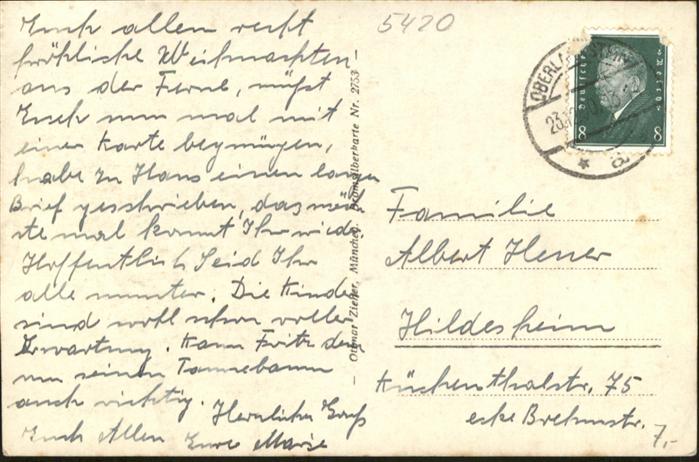 Euch allen recht
fröhliche Weihnachten
aus der Ferne, müßt
Euch nun mal mit
einer Karte begnügen,
habe in Haus einen langen
Brief geschrieben, das näch
ste mal kommt Ihr wieder
Hoffentlich seid Ihr
alle munter. Die Kinder
sind wohl schon voller
Erwartung. Kann Fritz den
nun seinen Tannebaum
auch richtig. Herzlichen Gruß
Euch Allen Eure Marie
5420
— Ottmar Zieher, München, Bromsilberkarte Nr. 2753
OBERLA
23.12
Deutsches Reich
8 8
Familie
Albert Hener
Hildesheim
Küchenthalstr. 75
ecke Brehmstr.
7,-